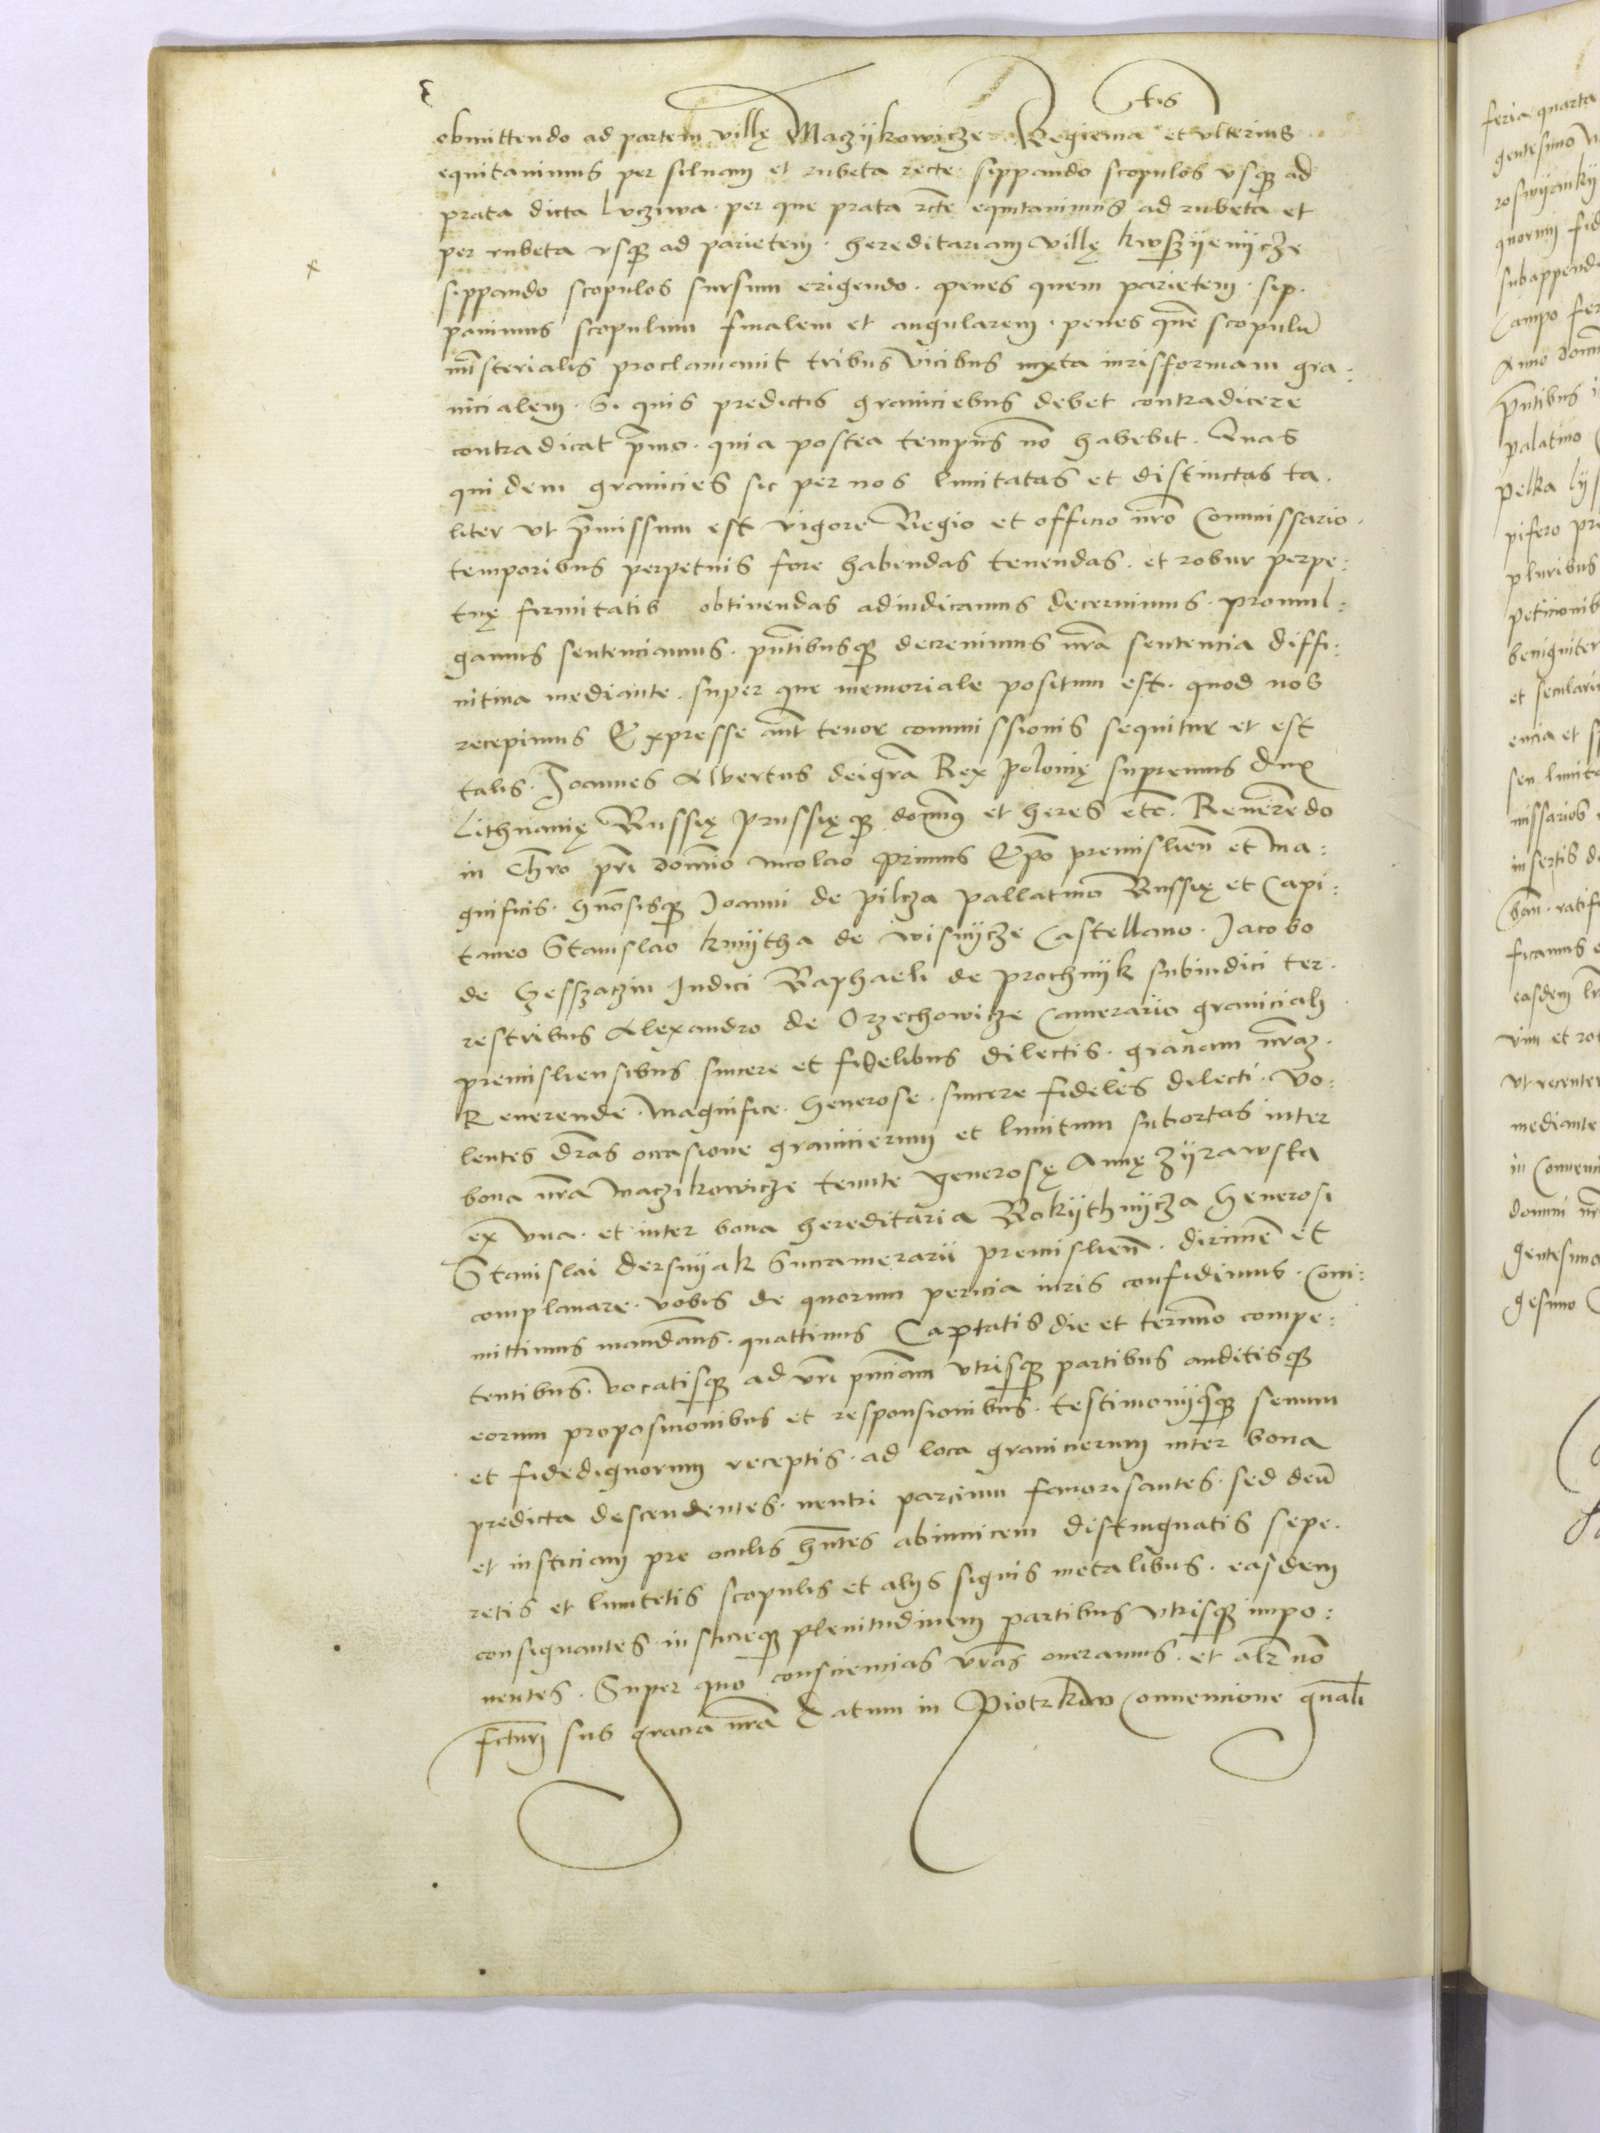 obmittendo ad partem villę Maczykowicze Regiema tis et vlterius
equitauimus per siluam et rubeta recte sippando scopulos vsq̃ ad
prata dicta Luczwa · per que prata rc̃te equitauimus ad rubeta et
per rubeta vsq̃ ad parietem · hereditariam villę
sippando scopulos sursum erigendo · penes quem parietem · sip·
pauimus scopulum finalem et angularem · penes quẽ scopulũ
mĩsterialis proclamauit tribus vicibus iuxta iurisformam gra:
nicialem · Si quis predictis graniciebus debet contradicere
contradicat p̃mo · quia postea tempus nõ habebit · Quas
quidem granicies sic per nos limitatas et distinctas ta·
liter vt p̃missum est vigore Regio et officio nr̃o Commissario ·
temporibus perpetuis fore habendas tenendas · et robur perpe:
tuę firmitatis obtinendas adiudicamus decernimus · promul:
gamus sentenciamus · pñtibusq̃ decreuimus nr̃a sentencia diffi:
nitiua mediante · super que memoriale positum est · quod nos
recepimus Expresse aut̃ tenor commissionis sequitur et est
talis · Joannes Albertus deigr̃a Rex polonię supremus dux
Lithuanię Russię prussięq̃ domin9 et heres etc̃ · Reuerendo
in Chr̃o pr̃i domino nicolao primus Ep̃o premislieñ et Ma:
gnificis · Gnõsisq̃ Joanni de pilcza pallatino Russię et Capi:
taneo Stanislao kmytha de wisnycze Castellano · Jacobo
de Judici Raphaeli de prochnyk subiudici ter·
restribus Alexandro de Orzechowicze Camerario graniciali
premisliensibus sincere et fidelibus dilectis · graciam nr̃am ·
Reuerende · Magnifice · Generose · sincere fideles delecti · Vo:
lentes dr̃as occasione granicierum et limitum subortas inter
bona nr̃a Maczikowicze tenute generosę Annę Zyrawska
ex vna · et inter bona hereditaria Rokythnycza Generosi
Stanislai dersnyak Succamerarii premislieñ · dirimẽ et
complanare · vobis de quorum pericia iuris confidimus · Com:
mittimus mandãus · quattinus Captatis die et termino compe:
tentibus · vocatisq̃ ad vr̃i pñciam vtrisq̃ partibus auditisq̃
eorum proposicionibus et responsionibus · testimonijsq̃ senum
et fidedignorum receptis · ad loca granicierum inter bona
predicta descendentes · neutri parcium fauorisantes · sed deũ
et iusticiam pre oculis hñtes abinuicem distinguatis sepe·
retis et limitetis scopulis et alijs signis metalibus · easdem
consignantes · iusticieq̃ plenitudinem partibus vtrisq̃ impo:
nentes · Super quo consciencias vr̃as oneramus · et alr̃ nõ
fctur̃ sub gracia nr̃a Datum in Piotrkow Conuencione gñali